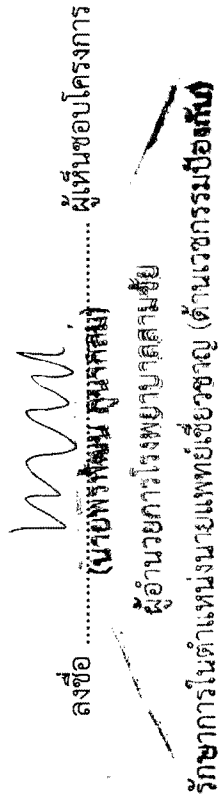 ลงชื่อ ........................................ ผู้เห็นชอบโครงการ
(นายพรพัฒน์ ภูนากลม)
ผู้อำนวยการโรงพยาบาลสามชัย
รักษาการในตำแหน่งนายแพทย์เชี่ยวชาญ (ด้านเวชกรรมป้องกัน)